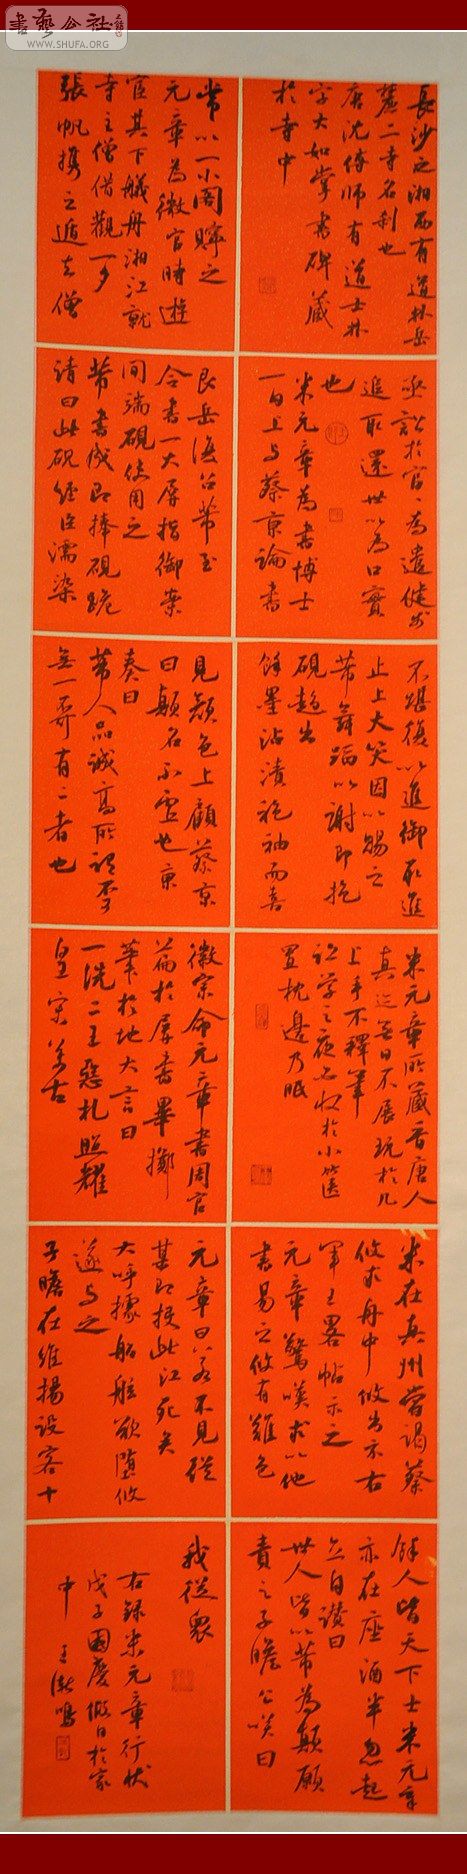 書藝公社
WWW.SHUFA.ORG
長沙之湘西有道林岳
麓二寺名刹也
唐沈傅師有道士林
字大如掌書碑藏
於寺中
常以一小閣貯之
元章為微官時遊
宦其下艤舟湘江就
寺主僧借觀一夕
張帆携之遁去僧
亟訟於官官為遣健步
追取還世以為口實
也
米元章為書博士
一日上与蔡京論書
艮岳復召芾至
令書一大屏指御案
間端硯使用之
芾書成即捧硯跪
請曰此硯經臣濡染
不堪復以進御取進
止上大笑因以賜之
芾舞蹈以謝即抱
硯趨出
餘墨沾漬袍袖而喜
見顏色上顧蔡京
曰顛名不虛也京
奏曰
芾人品誠高所謂不可
無一不可有二者也
米元章所藏晉唐人
真迹無日不展玩於几
上手不釋筆
臨學之夜必收於小篋
置枕邊乃眠
徽宗命元章書周官
篇於屏書畢擲
筆於地大言曰
一洗二王惡札照耀
皇宋萬古
米在真州嘗謁蔡
攸於舟中攸出示右
軍王畧帖示之
元章驚嘆求以他
書易之攸有難色
元章曰若不見從
某即投此江死矣
大呼據船舷欲墮攸
遂与之
子瞻在維揚設客十
餘人皆天下士米元章
亦在座酒半忽起
立自讚曰
世人皆以芾為顛願
質之子瞻公笑曰
我從眾
右録米元章行狀
戊子國慶假日於家
中 王鳴